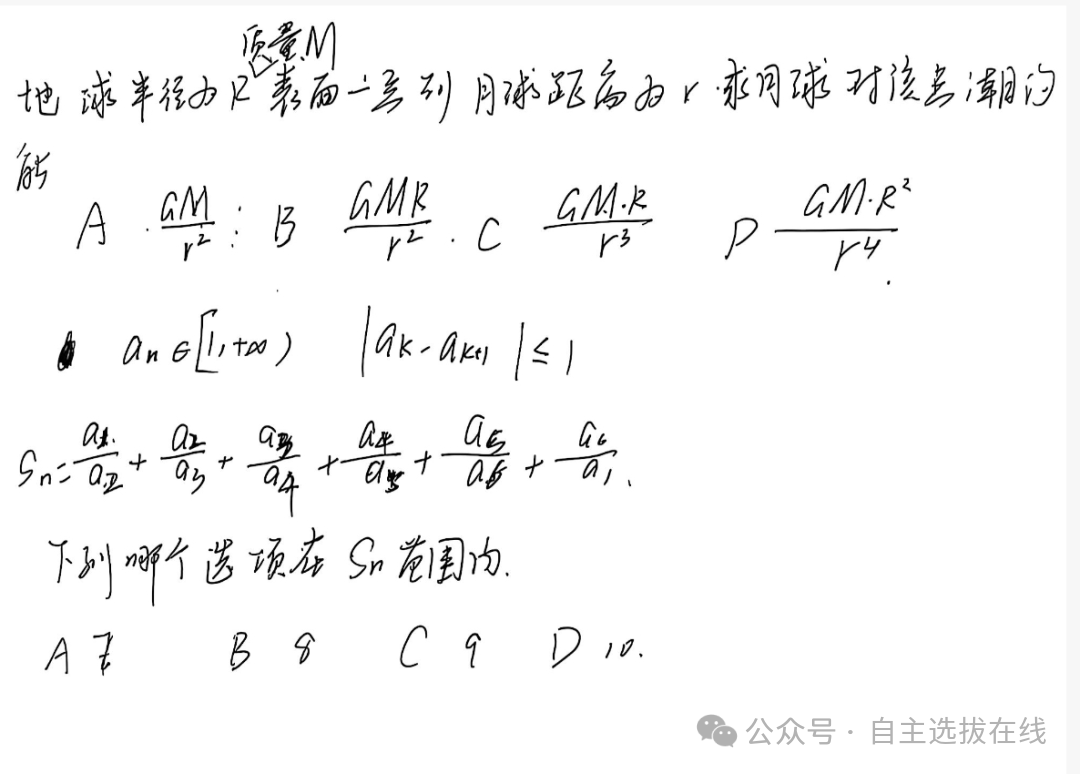 质量M
地球半径为R 表面一点到月球距离为r.求月球对该点潮汐
能
A. GM/r² : B GMR/r². C GM.R/r³ D GM.R²/r⁴.
aₙ∈[1,+∞) |aₖ-aₖ₊₁|≤1
Sₙ=a₁/a₂+a₂/a₃+a₃/a₄+a₄/a₅+a₅/a₆+a₆/a₁.
下列哪个选项在Sₙ范围内.
A 7 B 8 C 9 D 10.
公众号·自主选拔在线